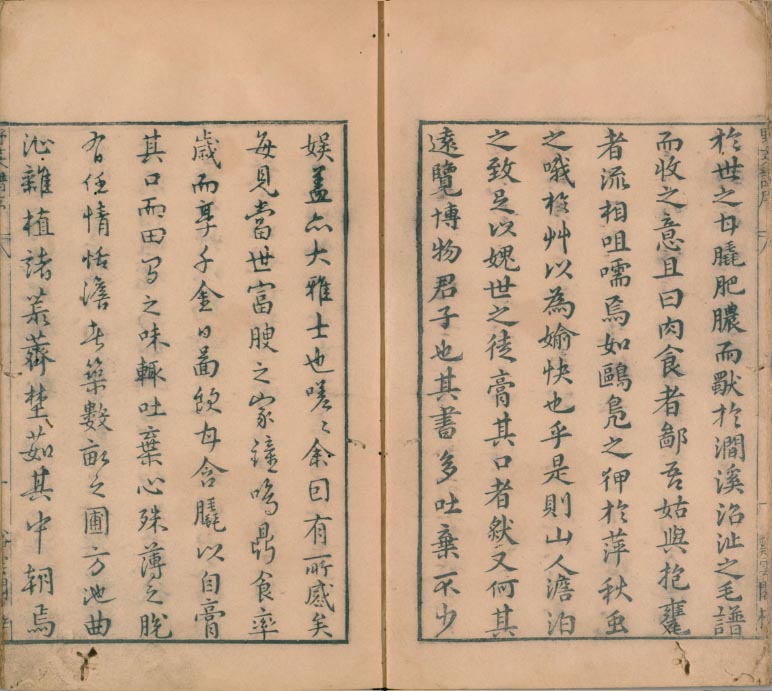 於世之甘膬肥膿而厭於澗溪沼沚之毛譜
而收之意且曰肉食者鄙吾姑與抱甕
者流相咀嚅焉如鷗鳧之狎於萍秋虫
之哦於艸以為愉快也乎是則山人澹泊
之致足以媿世之徒膏其口者然又何其
遠覽博物君子也其書多吐棄一不少
娛盖亦大雅士也嗟〻余因有所感矣
每見當世富腴之家鐘鳴鼎食率
歲而享千金日啚飲甘含膬以自膏
其口而田舄之味輒吐棄心殊薄之脫
有任情恬澹者築數畝之圃方池曲
沁雜植諸菘薺埜茹其中朝焉